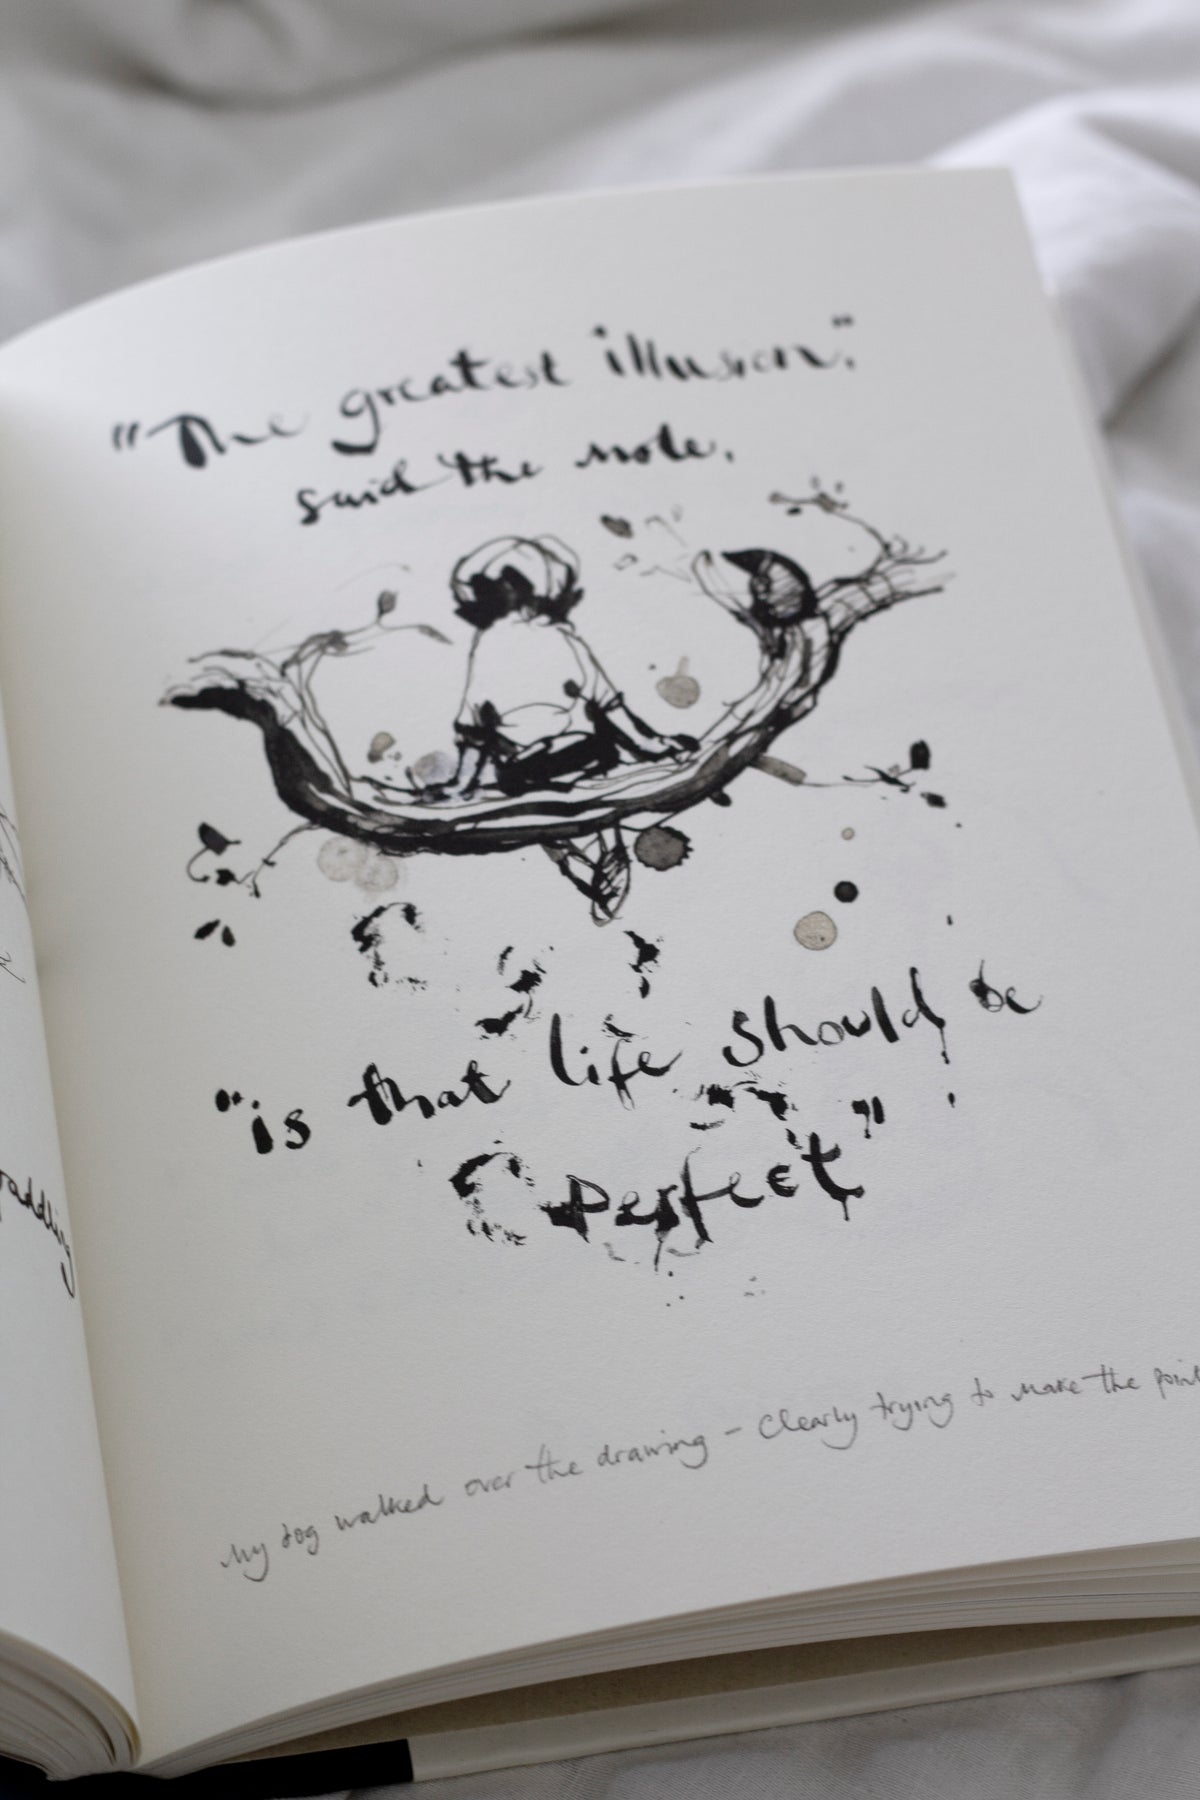 "The greatest illusion,"
said the mole,
"is that life should be
perfect"
My dog walked over the drawing - Clearly trying to make the point